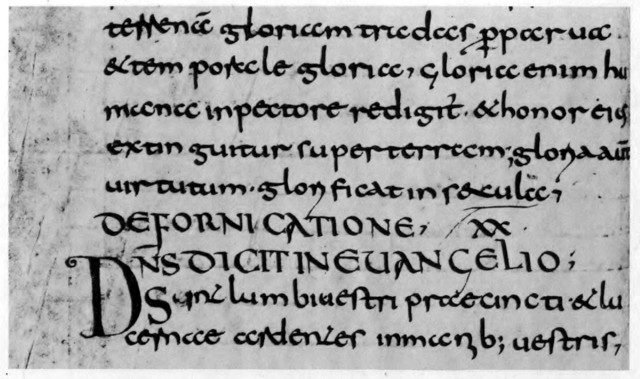 terrenā gloriam tradas ꝑpar ua
&tem porale gloria, gloria enim hu
mana inpectore redigit̄. &honor eius
extin guitur super terram; gloria aut̄
uirtutum. glorificat in secula;
DEFORNICATIONE, XX.
DN̄S DICIT INEUANGELIO;
Sint lumbi uestri praecincti &lu
cernae ardentes inmanib; uestris,